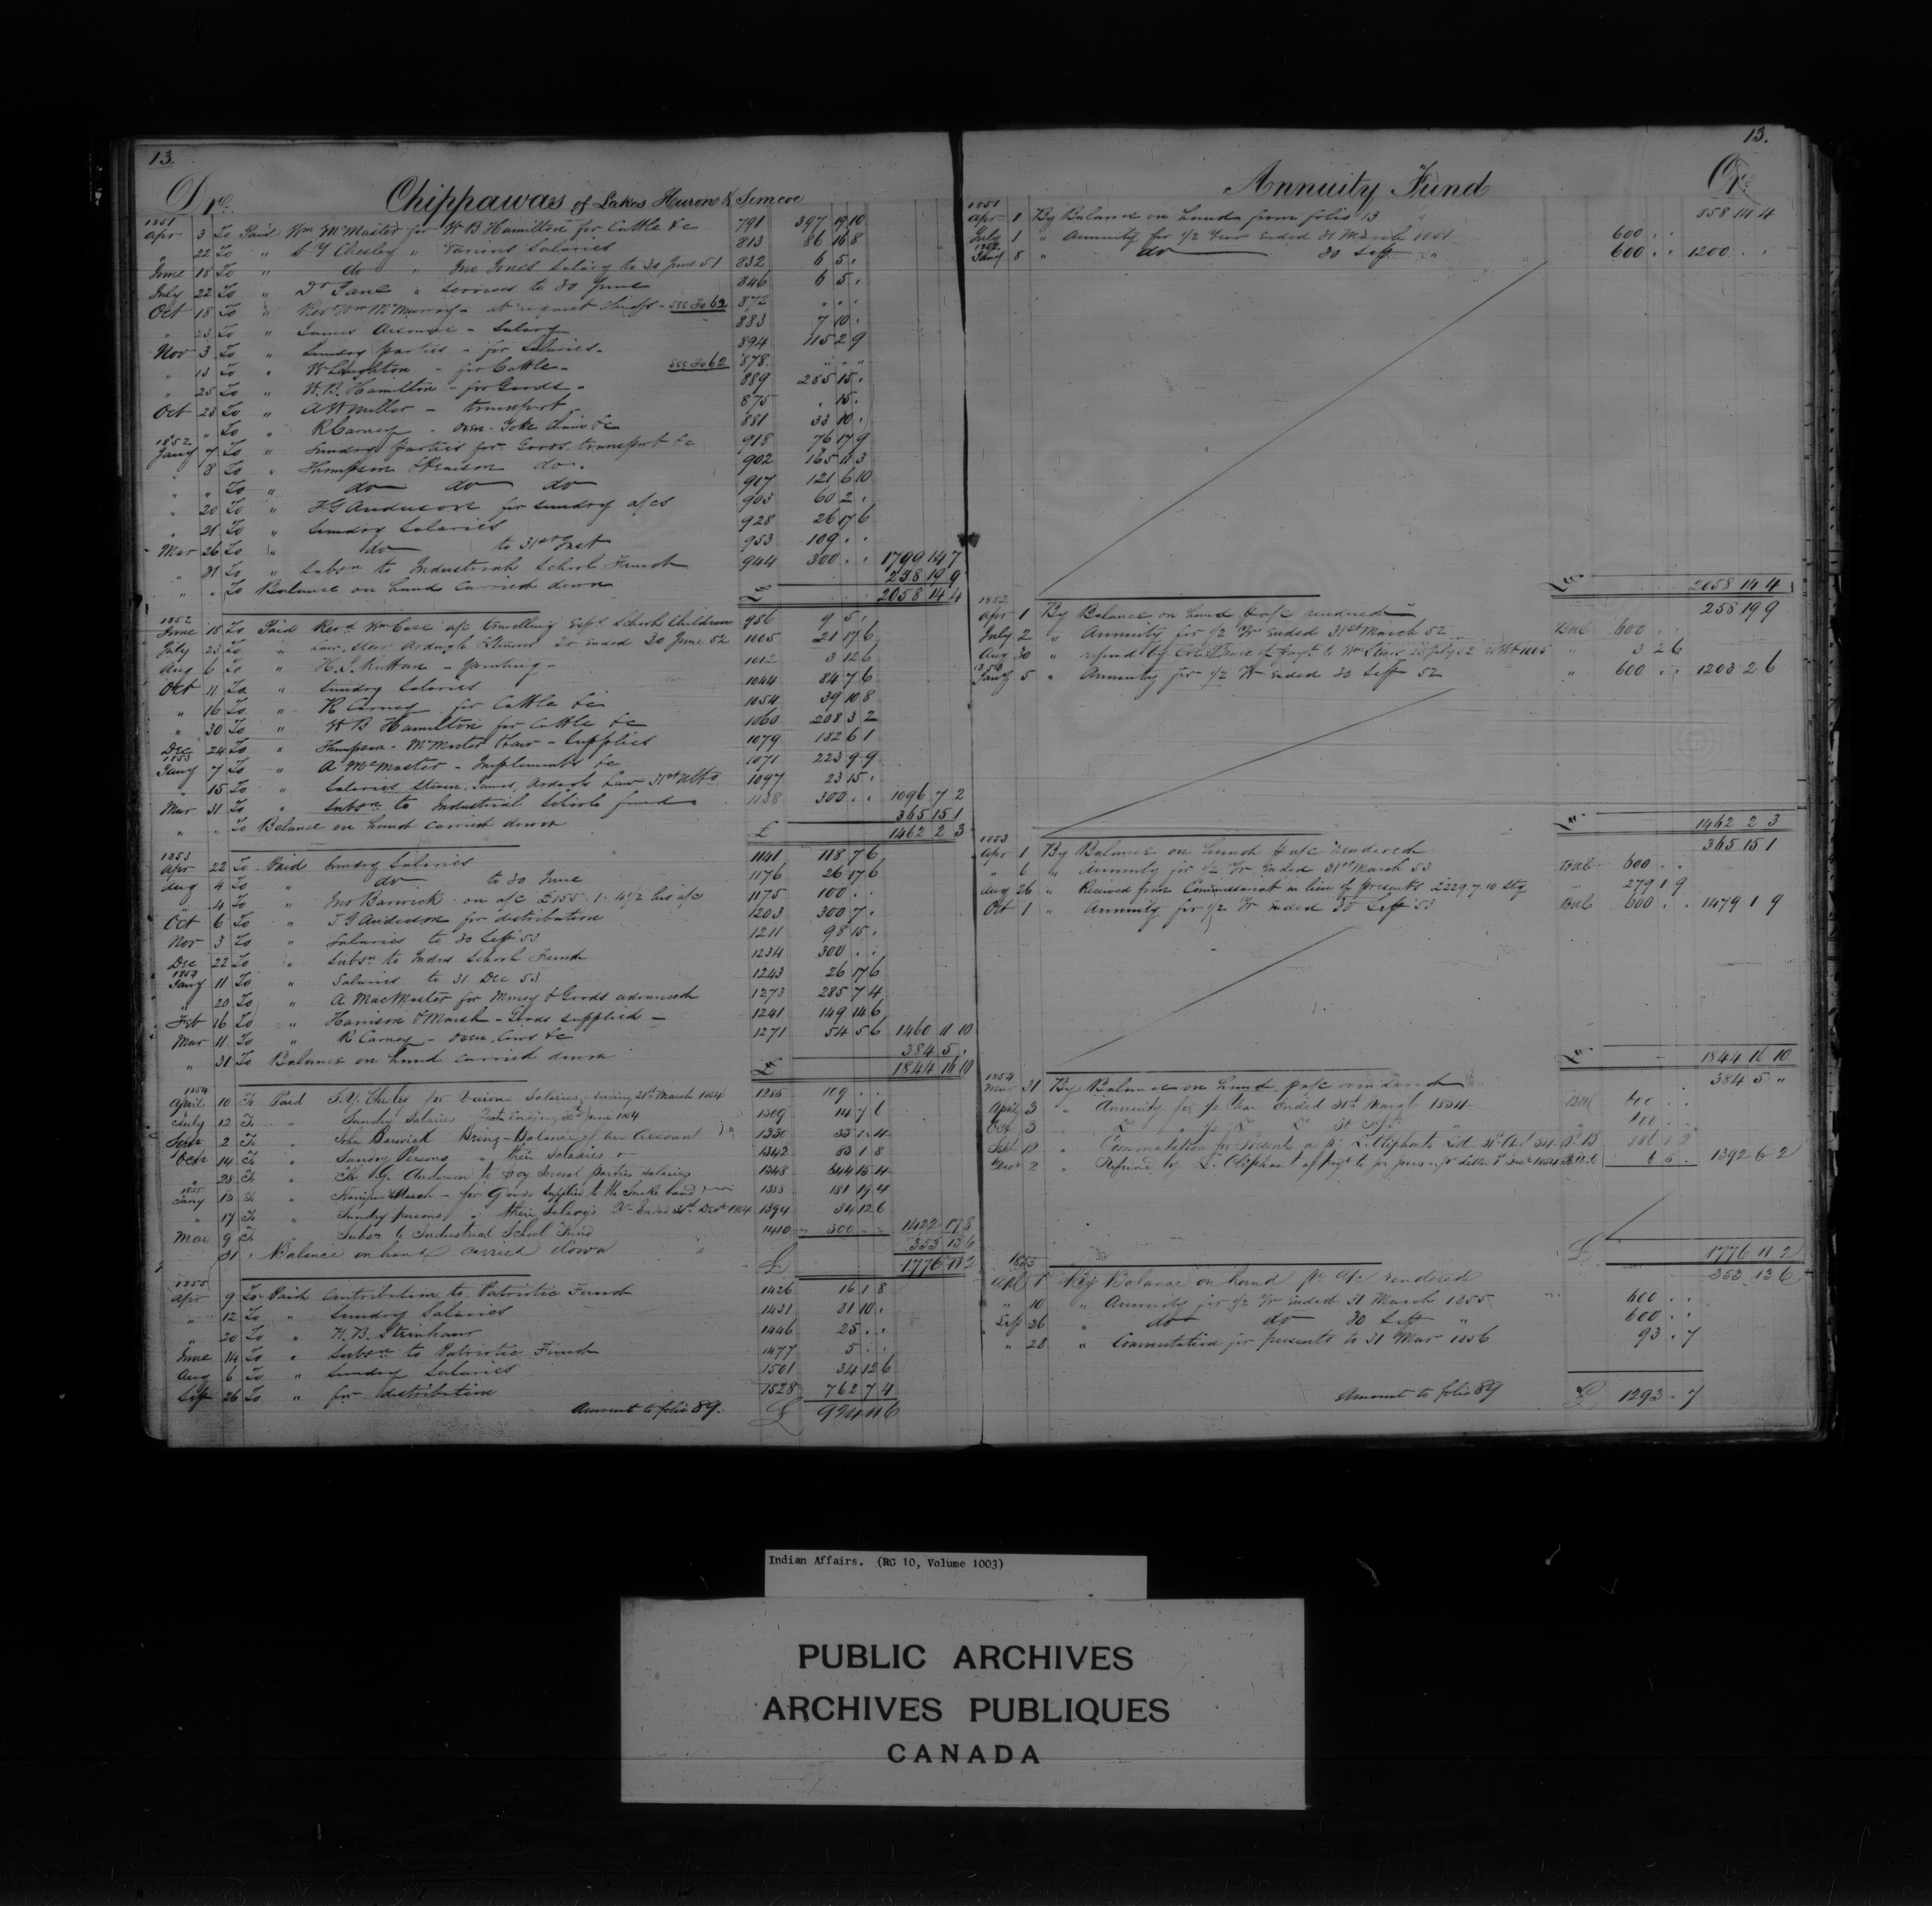 13.
Drs. Chippawas of Lakes Huron & Simcoe
1851
Apr 3 To Paid Wm McMaster for W B Hamilton for Cattle &c 791 397 19 10
" 22 To " S Y Chesley " Various Salaries 813 86 16 8
June 18 To " do " Jno Jones Salary to 30 June 51 832 6 5 .
July 22 To " Dr " Services to 30 June 846 6 5 .
Oct 18 To " Revd Wm McMurray - at request - see Fo 62 872 . . .
" 23 To " James - Salary 883 7 10 .
Nov 3 To " Sundry parties - for Salaries - 894 115 2 9
" 13 To " W - for Cattle - see Fo 62 878 " " "
" 25 To " W. B. Hamilton - for Goods - 889 285 15 .
Oct 25 To " A W Miller - transport 875 . 15 .
" " To " R Carney - Oxen Yoke Chains &c 881 33 10 .
1852
Jany 7 To " Sundry parties for Goods transport &c 918 76 17 9
" 8 To " Thompson do. 902 165 11 3
" " To " do do do 917 121 6 10
" 20 To " T G Anderson for sundry a/cs 903 60 2 .
" 21 To " Sundry Salaries 928 26 17 6
Mar 26 To " do to 31st Inst 953 109 . .
" 31 To " Subsn to Industrial School Fund 944 300 . . 1799 14 7
" " To Balance on hand carried down 258 19 9
£ 2058 14 4
1852
June 18 To Paid Revd Wm Case a/c travelling Exps School Children 956 9 5 .
July 23 To " Law, Steer Ardagh & Qr ended 30 June 52 1005 21 17 6
Aug 6 To " H. J. Ruttan - 1012 3 12 6
Oct 11 To " Sundry Salaries 1044 84 7 6
" 16 To " R Carney for Cattle &c 1054 39 10 8
" 30 To " W B Hamilton for Cattle &c 1060 208 3 2
Dec 24 To " Thompson - McMaster - Supplies 1079 182 6 1
1853
Jany 7 To " A McMaster - Implements &c 1071 223 9 9
" 15 To " Salaries James, Ardagh Law 31st Ulto 1097 23 15 .
Mar 31 To " Subsn to Industrial Schools fund 1138 300 . . 1096 7 2
" " To Balance on hand carried down 365 15 1
£ 1462 2 3
1853
Apr 22 To Paid Sundry Salaries 1141 118 7 6
Aug 4 To " do to 30 June 1176 26 17 6
" 4 To " Jno Barwick on a/c £155. 1. 4 1/2 his a/c 1175 100 . .
Oct 6 To " T G Anderson for distribution 1203 300 7 .
Nov 3 To " Salaries to 30 Sept 53 1211 98 15 .
Dec 22 To " Subsn to Indus School Fund 1234 300 . .
1854
Jany 11 To " Salaries to 31 Dec 53 1243 26 17 6
" 20 To " A MacMaster for Money & Goods advanced 1273 285 7 4
Feb 16 To " Harrison & Marsh - Goods supplied - 1241 149 14 6
Mar 11 To " R Carney - Oxen, Cows &c 1271 54 5 6 1460 11 10
" 31 To Balance on hand carried down 384 5 .
£ 1844 16 10
1854
April 10 To Paid S. Y. Chesley for Various Salaries, ending 31st March 1854 1285 109 . .
July 12 To " Sundry Salaries ending 30th June 1854 1309 14 7 6
Sept 2 To " John Barwick Being Balance of an Account 1330 55 1 4
Octr 14 To " Sundry Persons " their Salaries 1342 83 1 8
" 28 To " T. G. Anderson to pay Several parties Salaries 1348 344 15 4
1855
Jany 13 To " Harrison & March - for Goods supplied to the Snake band 1388 181 19 4
" 17 To " Sundry persons " their Salarys Qr Ended 31st Decr 1854 1394 34 12 6
Mar 9 To " Subsn to Industrial School Fund 1410 300 . . 1422 17 8
" 31 " Balance on hand carried down 353 13 6
£ 1776 11 2
1855
Apr 9 To Paid Contribution to Patriotic Fund 1426 16 1 8
" 12 To " Sundry Salaries 1431 81 10 .
" 20 To " H. B. Steinhaur 1446 25 . .
June 14 To " Subsn to Patriotic Fund 1477 5 . .
Aug 6 To " Sundry Salaries 1501 34 12 6
Sept 26 To " for distribution 1528 762 7 4
Amount to folio 89. £ 924 11 6
13.
Annuity Fund Crs.
1851
Apr 1 By Balance on hand from folio 13 858 14 4
July 1 " Annuity for 1/2 Year Ended 31 March 1851 600 . .
1852
Jany 8 " do 30 Sept " 600 . . 1200 . .
£ 2058 14 4
1852
Apr 1 By Balance on hand p a/c rendered 258 19 9
July 2 " Annuity for 1/2 Yr Ended 31st March 52 Bal 600 . .
Aug 30 " refund by Col Bruce of payt to Wm Steer 1005 " 3 2 6
1853
Jany 5 " Annuity for 1/2 Yr Ended 30 Sept 52 " 600 . . 1203 2 6
£ 1462 2 3
1853
Apr 1 By Balance on hand p a/c rendered 365 15 1
" 6 " Annuity for 1/2 Yr Ended 31st March 53 Bal 600 . .
Aug 26 " Received from Commissariat in lieu of presents £229.7.10 Stg 279 1 9
Oct 1 " Annuity for 1/2 Yr Ended 30 Sept 53 Bal 600 . . 1479 1 9
£ 1844 16 10
1854
Mar 31 By Balance on hand p a/c rendered 384 5 "
April 3 " Annuity for 1/2 Year Ended 31st March 1854 Bal 600 . .
Oct 3 " Do " 1/2 Do Do 30 Sept 600 . .
Sept 12 " Commutation for Presents
Decr 2 " Refund by L. Oliphant 6 5 . 1392 6 2
£ 1776 11 2
1855 353 13 6
Apl 1 By Balance on hand pr a/c rendered
" 10 " Annuity for 1/2 Yr Ended 31 March 1855 600 . .
Sept 26 " do do 30 Sept " 600 . .
" 28 " Commutation for presents to 31 Mar 1856 93 . 7
Amount to folio 89 £ 1293 . 7
Indian Affairs. (RG 10, Volume 1003)
PUBLIC ARCHIVES
ARCHIVES PUBLIQUES
CANADA